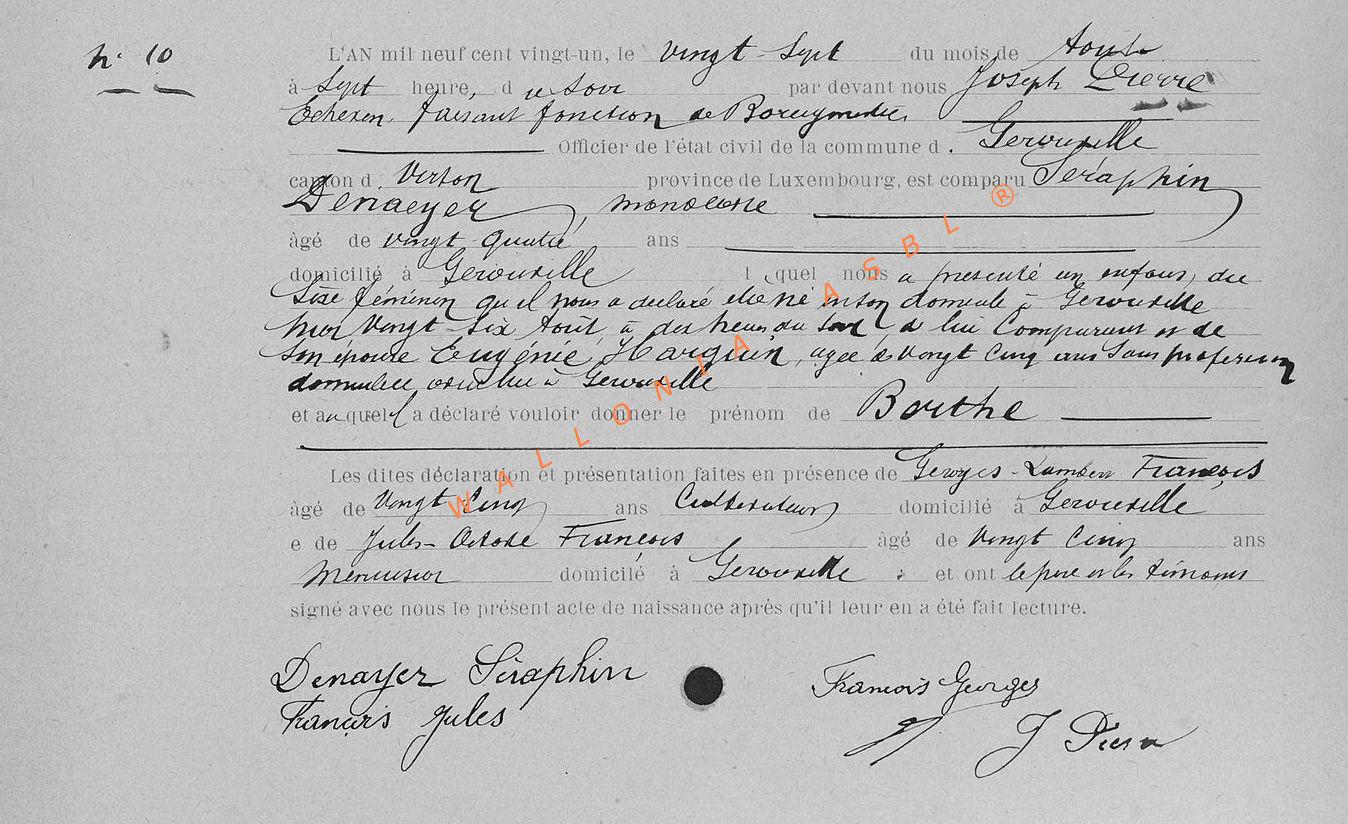 N° 10
L'AN mil neuf cent vingt-un, le vingt-sept du mois de Août
à sept heure, du soir par devant nous Joseph Pierre
Echevin faisant fonction de Bourgmestre
Officier de l'état civil de la commune d. Gerouville
canton d. Virton province de Luxembourg, est comparu Séraphin
Denaeyer, manœuvre
âgé de vingt quatre ans
domicilié à Gerouville lequel nous a présenté un enfant, du
sexe féminin qu'il nous a declaré être né en son domicile à Gerouville
hier vingt-six Août, à dix heures du soir, de lui comparant et de
son épouse Eugénie Harquin, agée de vingt cinq ans sans profession
domiciliée avec lui à Gerouville
et auquel il a déclaré vouloir donner le prénom de Berthe
Les dites déclaration et présentation faites en présence de Georges-Lambert François
âgé de vingt cinq ans Cultivateur domicilié à Gerouville
e de Jules-Octave François âgé de vingt cinq ans
Menuisier domicilé à Gerouville ; et ont le père et les témoins
signé avec nous le présent acte de naissance après qu'il leur en a été fait lecture.
Denayer Séraphin
François Georges
François Jules
J Pierre
WALLONIA ASBL ®